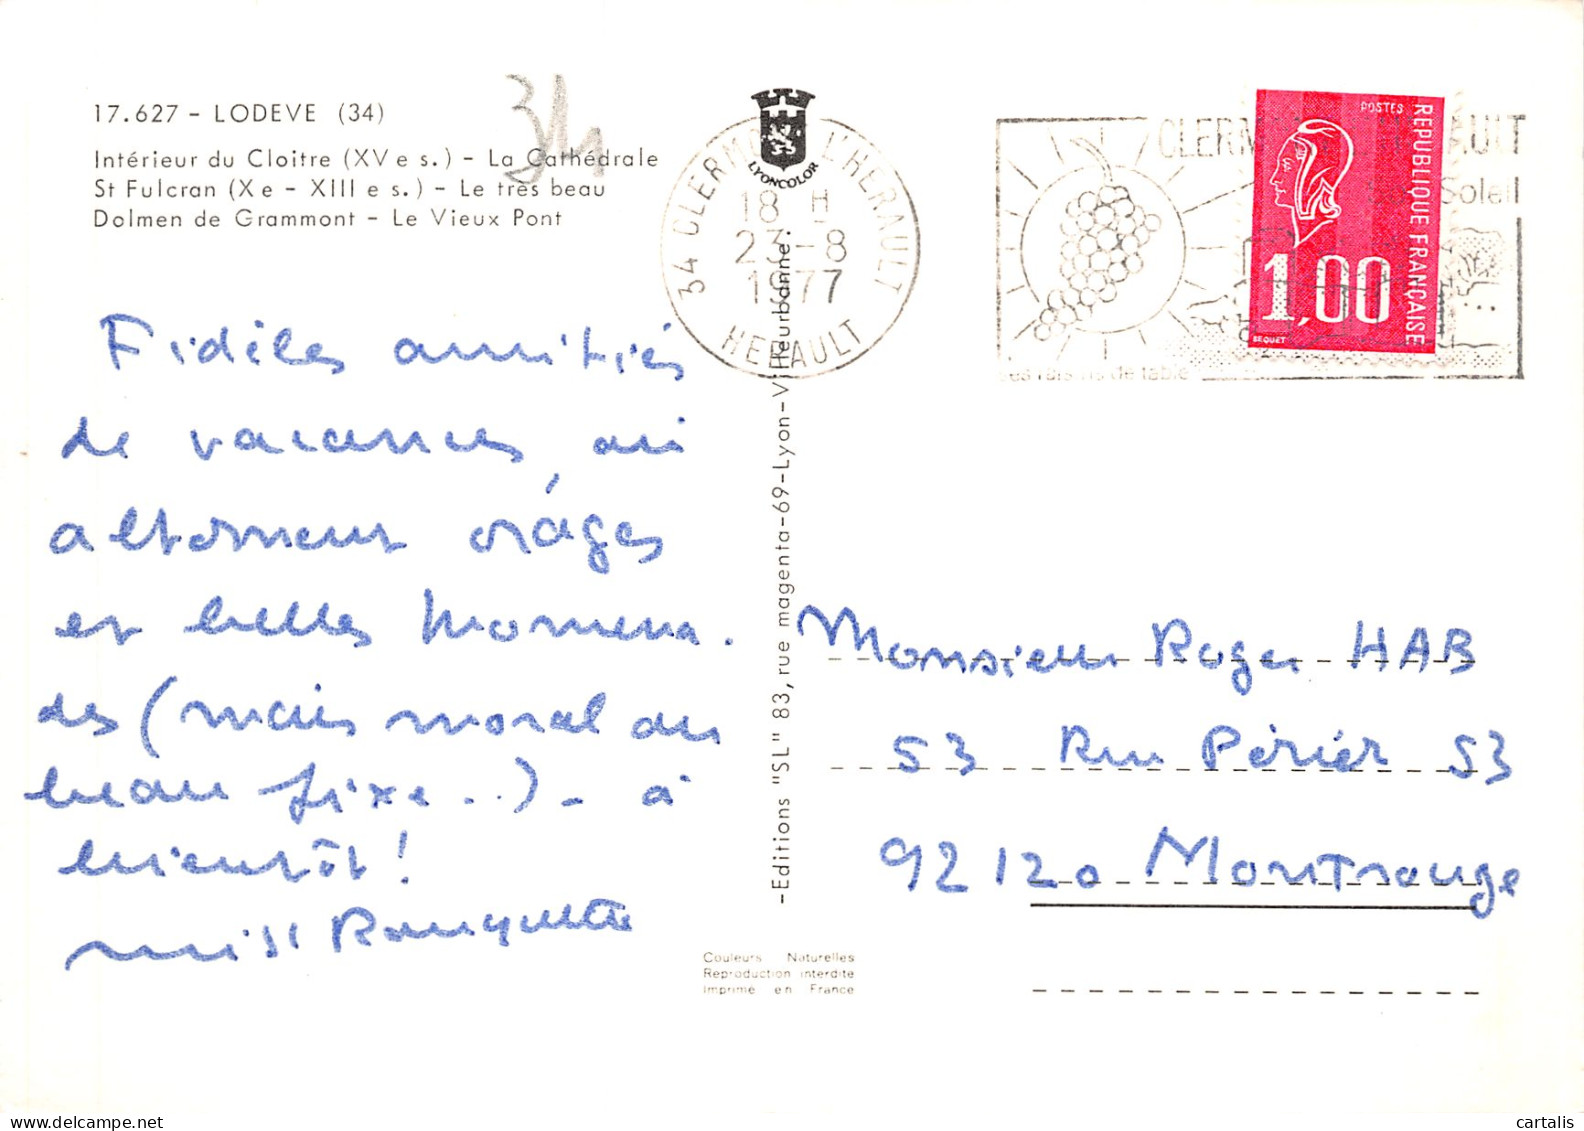 17.627 - LODEVE (34)
Intérieur du Cloitre (XV e s.) - La Cathédrale
St Fulcran (X e - XIII e s.) - Le très beau
Dolmen de Grammont - Le Vieux Pont
34
LYONCOLOR
34 CLERMONT L'HERAULT
18 H
23-8
1977
HERAULT
CLERM AULT
Soleil
ses raisins de table
POSTES
REPUBLIQUE FRANÇAISE
1,00
BEQUET
Fidèles amitiés
de vacances, où
alternent orages
et belles
des (mais moral au
beau fixe..) - à
bientôt!
miss Rouquette
-Editions "SL" 83, rue magenta-69-Lyon-Villeurbanne.
Monsieur Roger HAB
53 Rue Périer 53
92120 Montrouge
Couleurs Naturelles
Reproduction interdite
Imprimé en France
cartalis